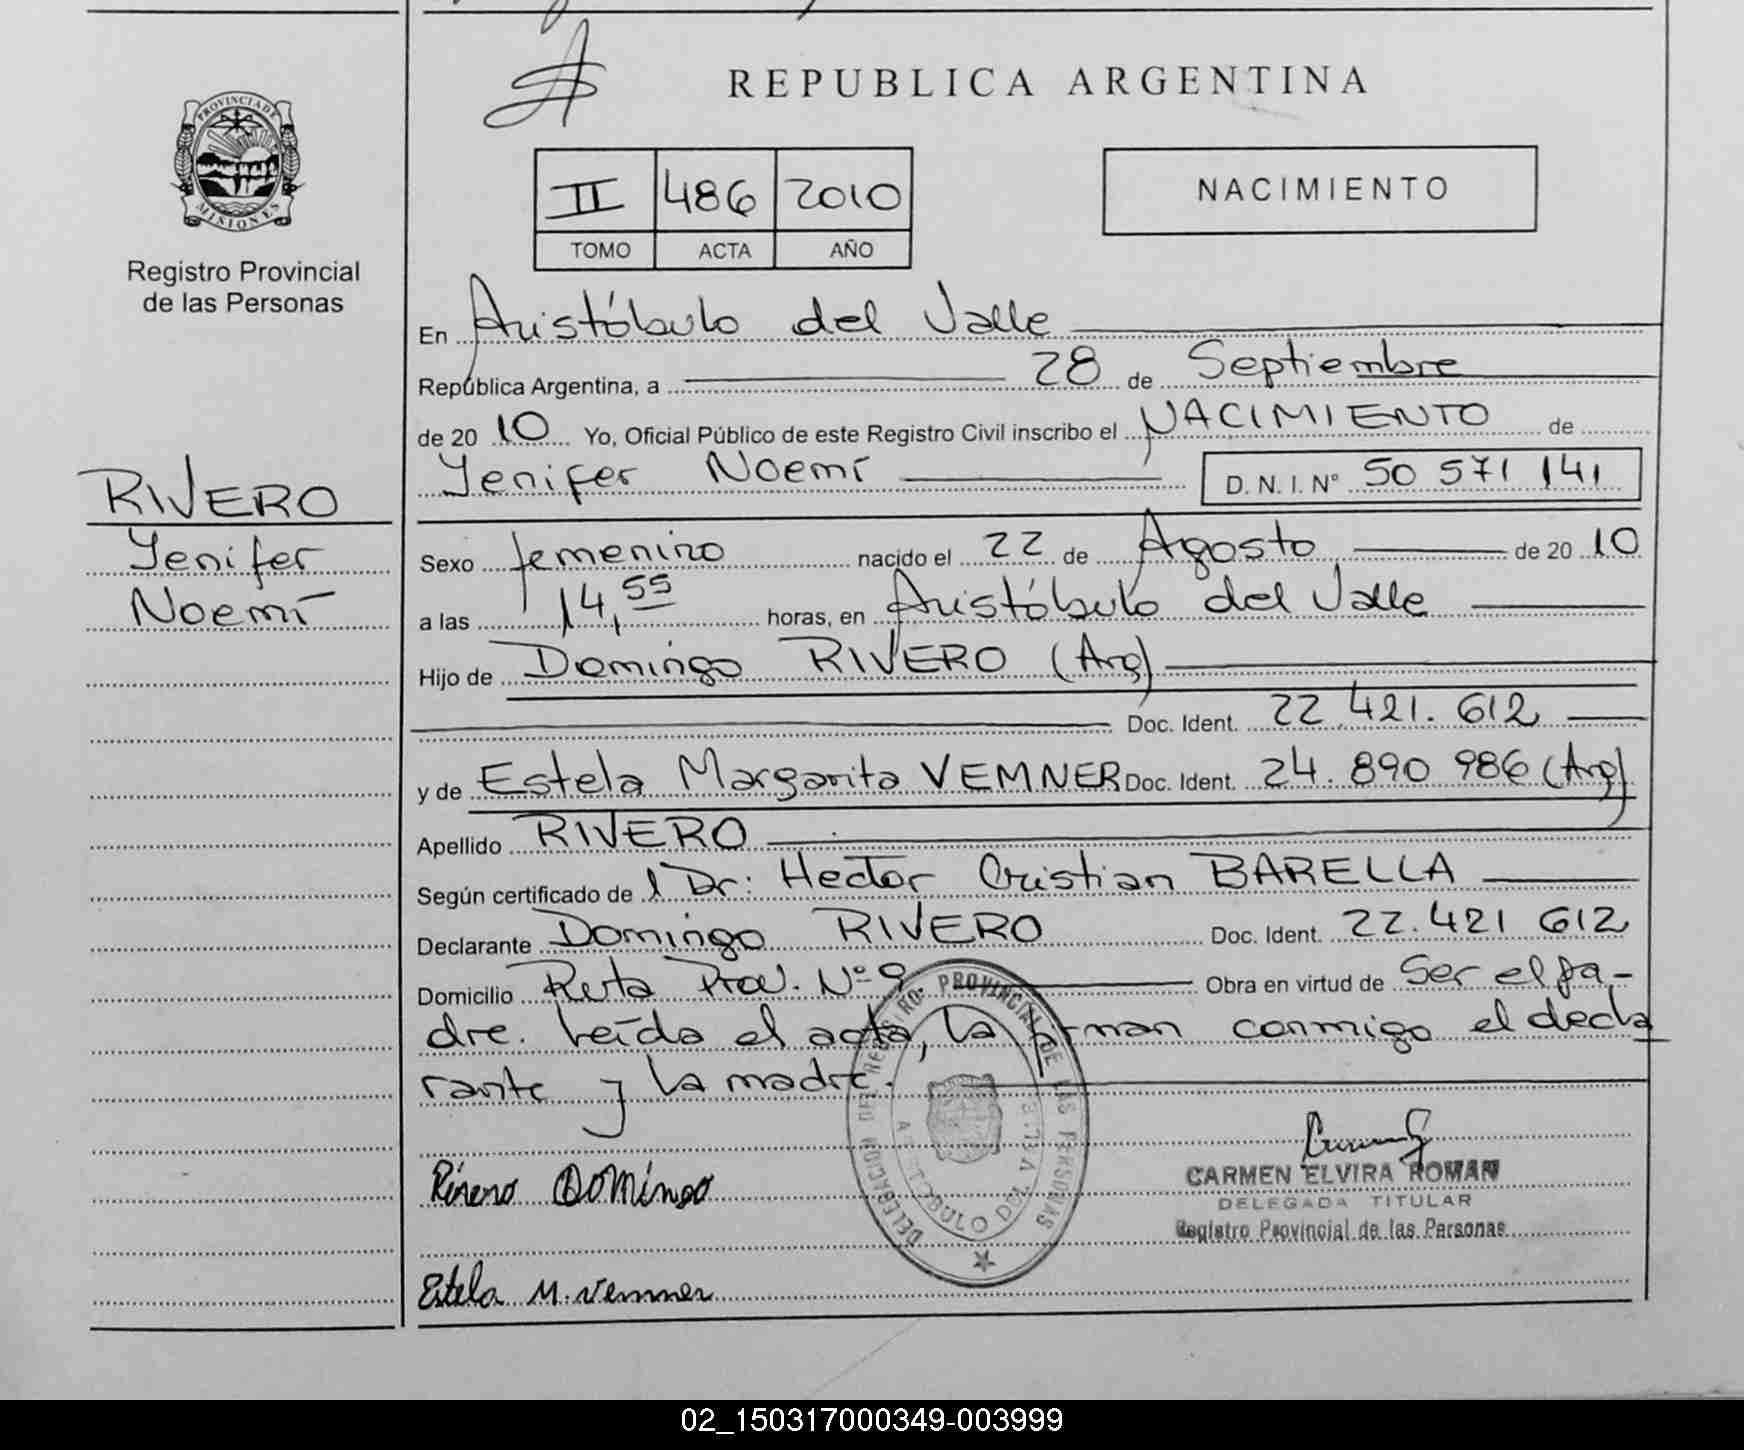 PROVINCIA DE
MISIONES
Registro Provincial
de las Personas
RIVERO
Yenifer
Noemí
REPUBLICA ARGENTINA
II 486 2010
TOMO ACTA AÑO
NACIMIENTO
En Aristóbulo del Valle
República Argentina, a 28 de Septiembre
de 20 10 Yo, Oficial Público de este Registro Civil inscribo el NACIMIENTO de
Yenifer Noemí D.N.I. Nº 50 571 141
Sexo femenino nacido el 22 de Agosto de 20 10
a las 14,55 horas, en Aristóbulo del Valle
Hijo de Domingo RIVERO (Arg)
Doc. Ident. 22.421.612
y de Estela Margarita VEMNER Doc. Ident. 24.890 986 (Arg)
Apellido RIVERO
Según certificado de l Dr: Hector Cristian BARELLA
Declarante Domingo RIVERO Doc. Ident. 22.421 612
Domicilio Ruta Prov. Nº 9 Obra en virtud de Ser el pa-
dre. Leída el acta, la firman conmigo el decla
rante y la madre.
DELEGACION DEL REGISTRO PROVINCIAL DE LAS PERSONAS
ARISTOBULO DEL VALLE
CARMEN ELVIRA ROMAN
DELEGADA TITULAR
Registro Provincial de las Personas
Rivero DOMingo
Estela M. Vemner
02_150317000349-003999